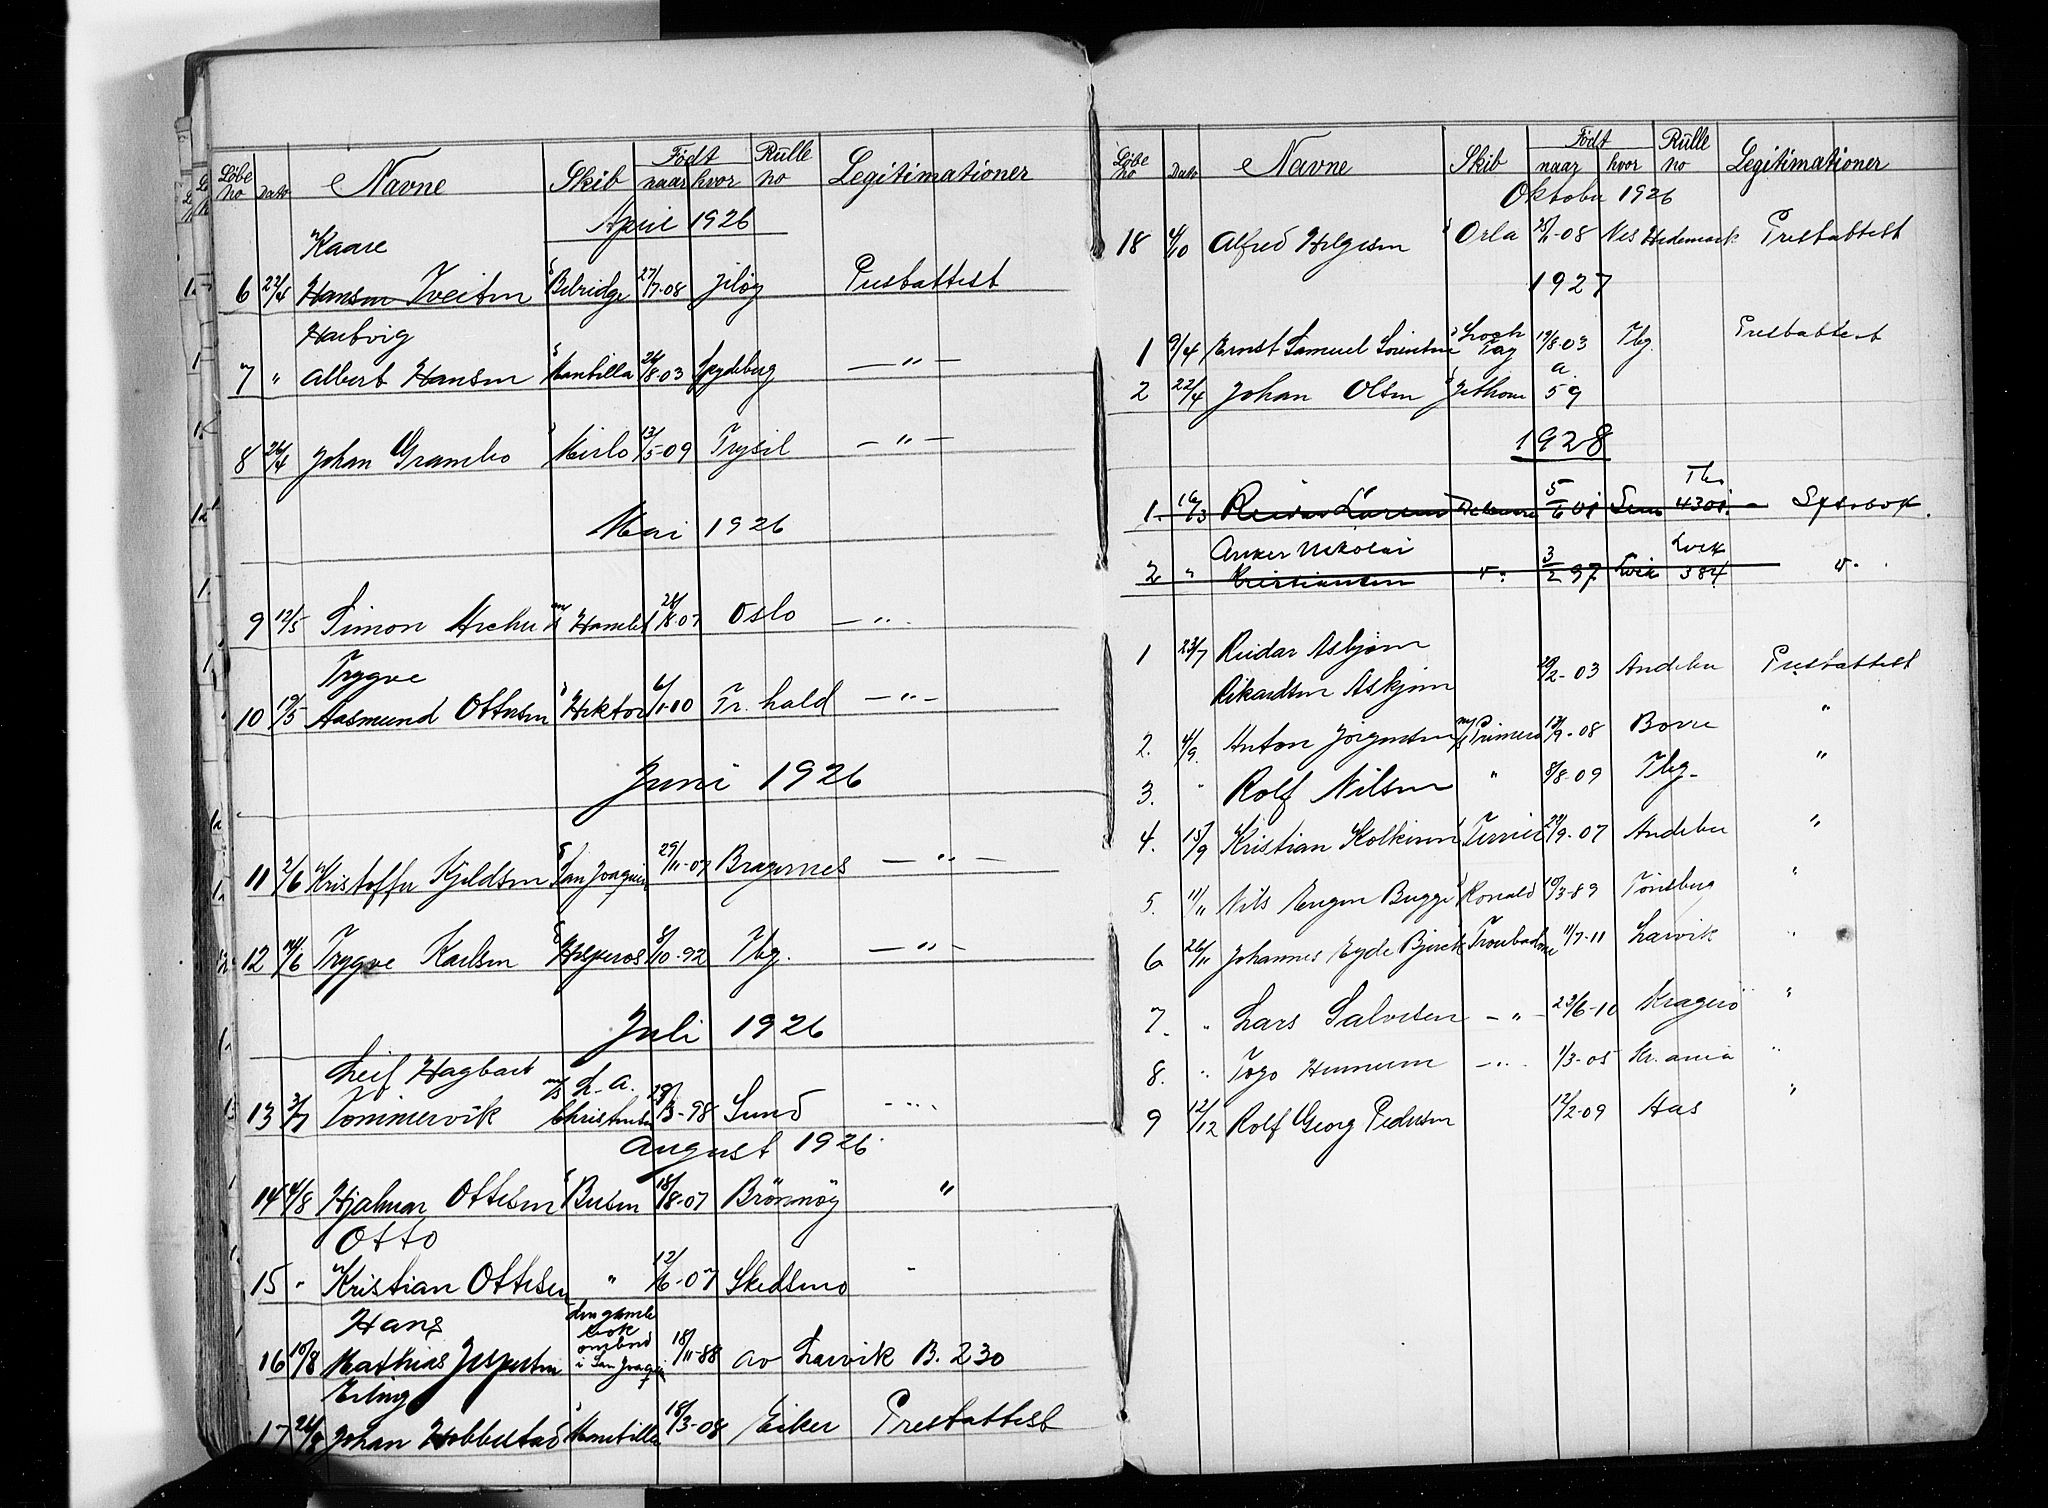 Løbe no Dato Navne Skib Født naar hvor Rulle no Legitimationer
April 1926
Kaare
6 22/4 Hansen Tveiten s Belridge 27/7-08 Prestattest
Hartvig
7 " Albert Hansen s Montilla 24/8-03 Spydeberg — " —
8 26/4 Johan Grambo s Mirlo 13/5-09 Trysil — " —
Mai 1926
9 12/5 Simon m/s Hamlet 08-07 Oslo — " .
Trygve
10 19/5 Aasmund Ottesen s Hektor 6/1-10 Fr. hald — " —
Juni 1926
11 2/6 Kristoffer Kjeldsen s San Joaquin 29/11-07 Bragernes — " —
12 14/6 Trygve Karlsen s Hesperos 8/10-92 Tbg. — " —
Juli 1926
Leif Hagbart
13 3/7 Tommervik m/s L. A. Christensen 29/3-98 Sund - " -
August 1926
14 4/8 Hjalmar Ottesen s Busen 18/8-07 Brönnöy "
Otto
15 " Kristian Ottesen " 12/6-07 Skedsmo "
Hans
16 10/8 Mathias Jespersen den gamle bok ombord i San Joaquin 18/11-88 av Larvik B. 230
Erling
17 24/8 Johan Hobbelstad s Montilla 18/3-08 Eiker Prestattest
Løbe no Dato Navne Skib Født naar hvor Rulle no Legitimationer
Oktober 1926
18 4/10 Alfred Helgesen s Orla 25/11-08 Nes Hedemark Prestattest
1927
1 9/4 Ernst Samuel Sørensen s Loch Tay 19/8-03 Tbg. Prestattest
2 22/4 Johan Olsen s Jethou a 59
1928
Tbg
1. 16/3 Reidar Larsen Delaware 5/6 01 Sem 4301. — Sjøfsbok.
Anker Nikolai Lvik
2 " Kristiansen " 3/2 97 Lvik 384 "
1 23/7 Reidar Asbjørn
Rikardsen Askjem 20/2-03 Andebu Prestattest
2. 4/9. Anton Jørgensen m/s Primero 13/9-08 Borre "
3. " Rolf Nilsen " 8/8-09 Tbg- "
4. 15/9 Kristian Kolkinn s Terrier 29/9-07 Andebu "
5. 11/11 Nils Eugen Bugge s Ronald 10/3-89 Tönsberg "
6 26/11 Johannes Eyde Bjerck Troubadour 11/7-11 Larvik "
7. " Lars Salvesen — " — 23/6-10 Kragerö "
8. " Togo — " - 1/3-05 Kr. ania "
9 12/12 Rolf Georg Pedersen 12/2-09 Aas "